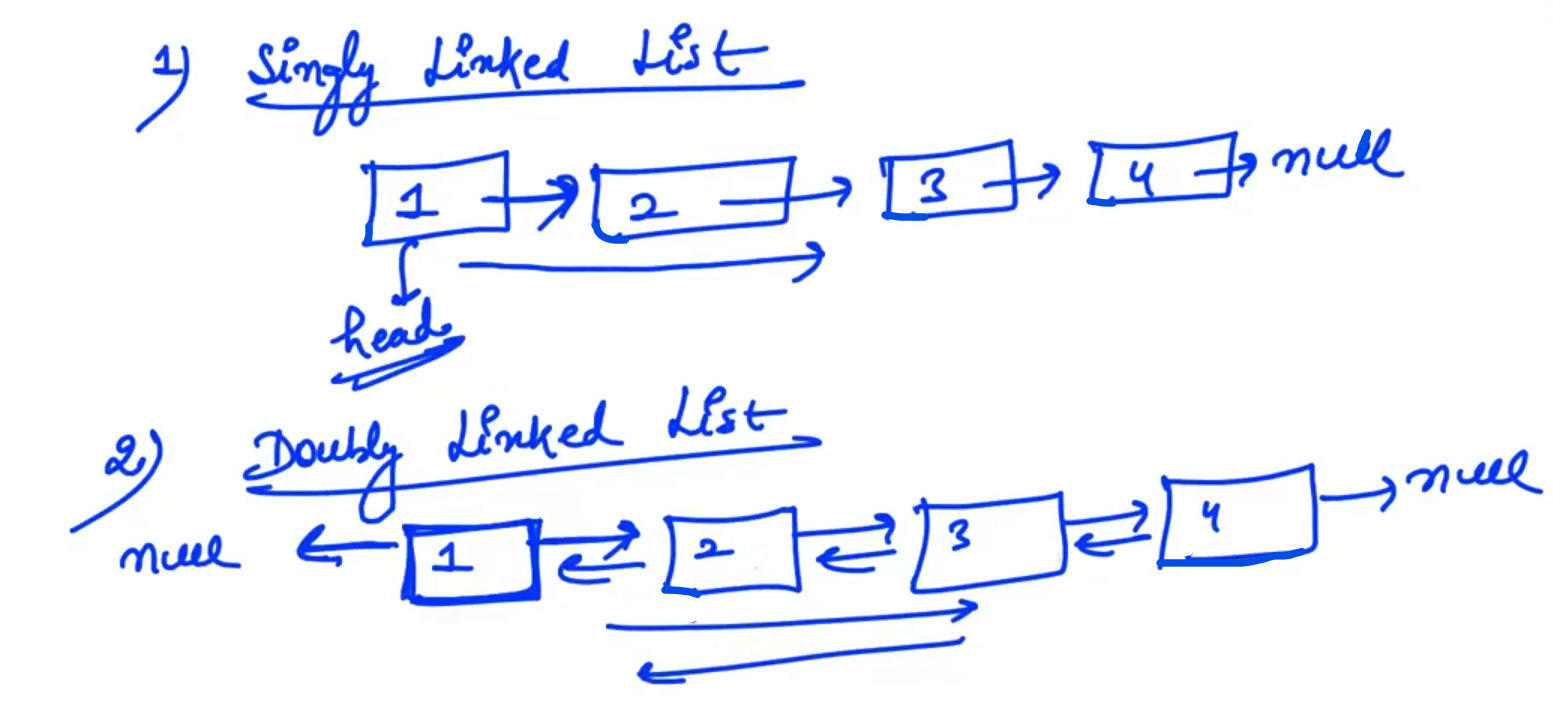 1) Singly Linked List
1 2 3 4 null
head
2) Doubly Linked List
null 1 2 3 4 null